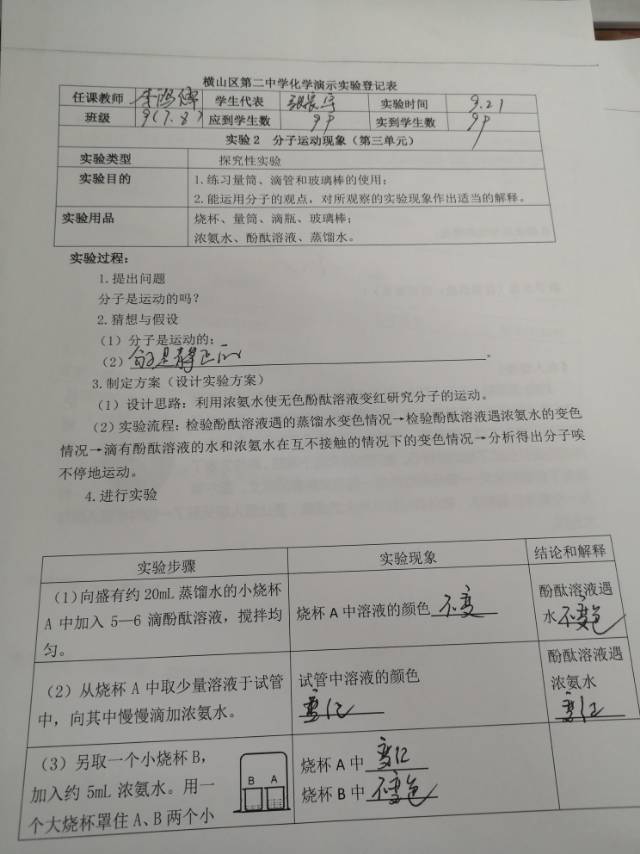 横山区第二中学化学演示实验登记表
任课教师 学生代表 实验时间 9.21
班级 9(7.8) 应到学生数 99 实到学生数 99
实验2 分子运动现象（第三单元）
实验类型 探究性实验
实验目的 1.练习量筒、滴管和玻璃棒的使用;
2.能运用分子的观点，对所观察的实验现象作出适当的解释。
实验用品 烧杯、量筒、滴瓶、玻璃棒;
浓氨水、酚酞溶液、蒸馏水。
实验过程:
1.提出问题
分子是运动的吗?
2.猜想与假设
（1）分子是运动的;
（2）分子是静止的。
3.制定方案（设计实验方案）
（1）设计思路: 利用浓氨水使无色酚酞溶液变红研究分子的运动。
（2）实验流程: 检验酚酞溶液遇的蒸馏水变色情况→检验酚酞溶液遇浓氨水的变色
情况→滴有酚酞溶液的水和浓氨水在互不接触的情况下的变色情况→分析得出分子唉
不停地运动。
4.进行实验
实验步骤 实验现象 结论和解释
（1）向盛有约 20mL 蒸馏水的小烧杯
A 中加入 5—6 滴酚酞溶液，搅拌均
匀。
烧杯 A 中溶液的颜色不变
酚酞溶液遇
水不变色
（2）从烧杯 A 中取少量溶液于试管
中，向其中慢慢滴加浓氨水。
试管中溶液的颜色
变红
酚酞溶液遇
浓氨水
变红
（3）另取一个小烧杯 B，
加入约 5mL 浓氨水。用一
个大烧杯罩住 A、B 两个小
B A
烧杯 A 中变红
烧杯 B 中不变色